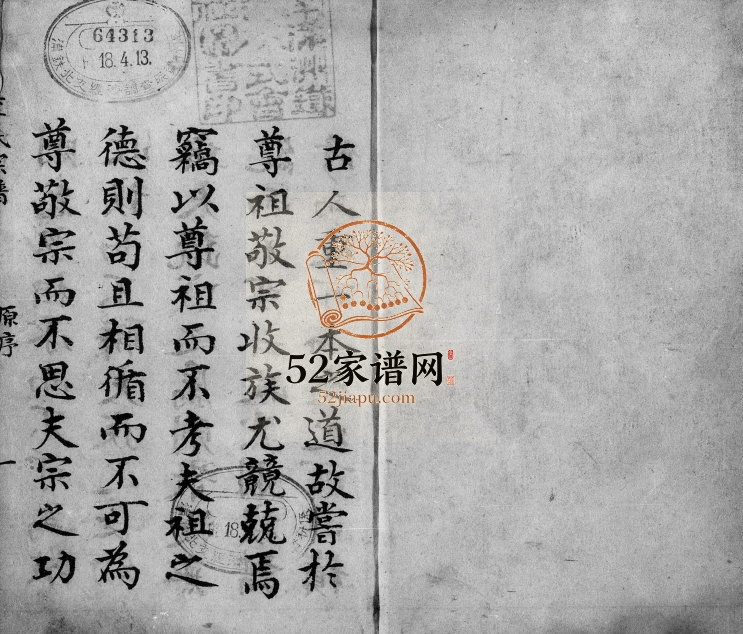 古人重一本之道故嘗於
尊祖敬宗收族尤競兢焉
竊以尊祖而不考夫祖之
德則苟且相循而不可為
尊敬宗而不思夫宗之功
原序
一
64313
18.4.13.
18.
52家谱网
52jiapu.com